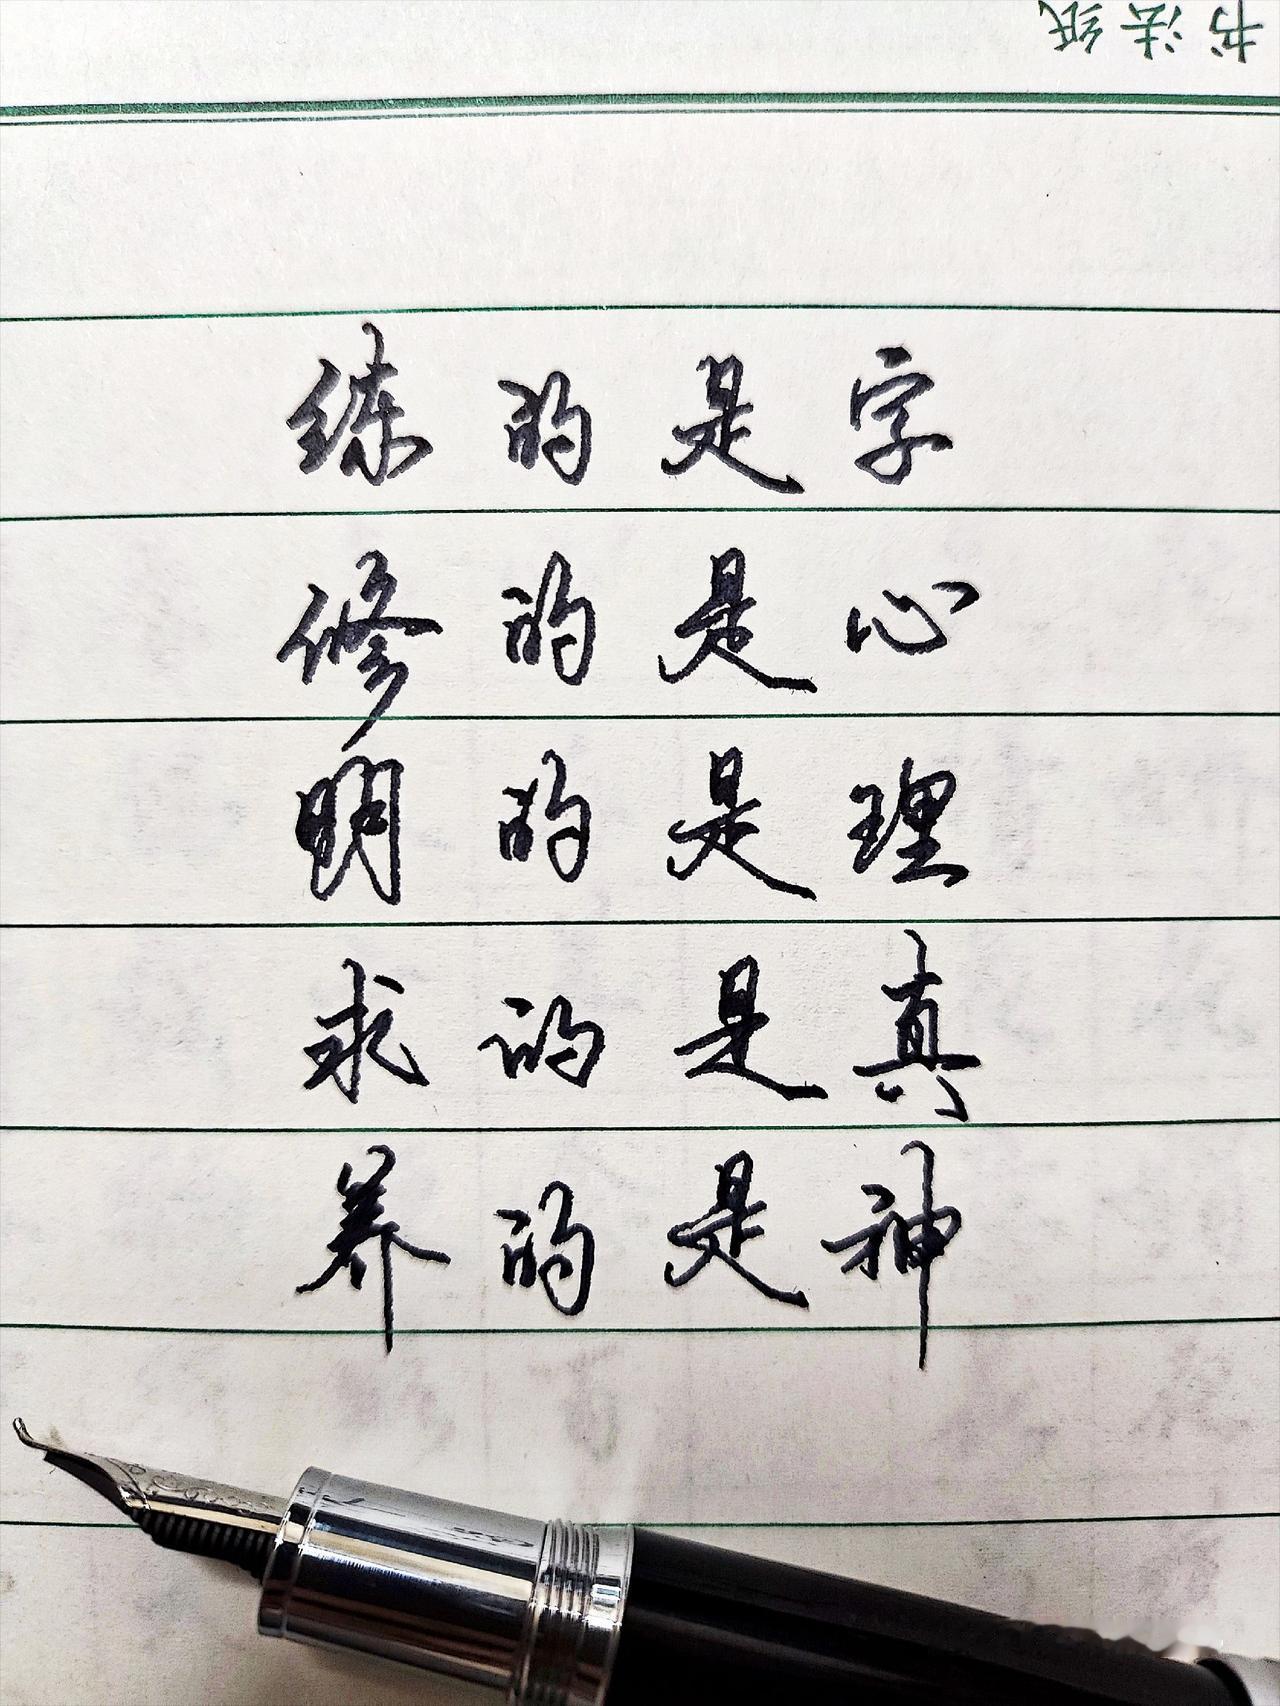 书法纸
练的是字
修的是心
明的是理
求的是真
养的是神